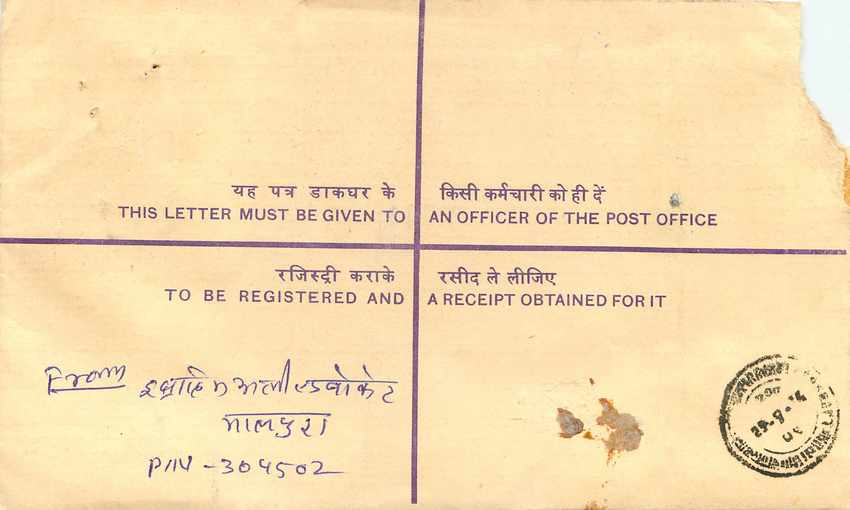 यह पत्र डाकघर के किसी कर्मचारी को ही दें
THIS LETTER MUST BE GIVEN TO AN OFFICER OF THE POST OFFICE
रजिस्ट्री कराके रसीद ले लीजिए
TO BE REGISTERED AND A RECEIPT OBTAINED FOR IT
From इब्राहिम अली एडवोकेट
मालपुरा
PIN - 304502